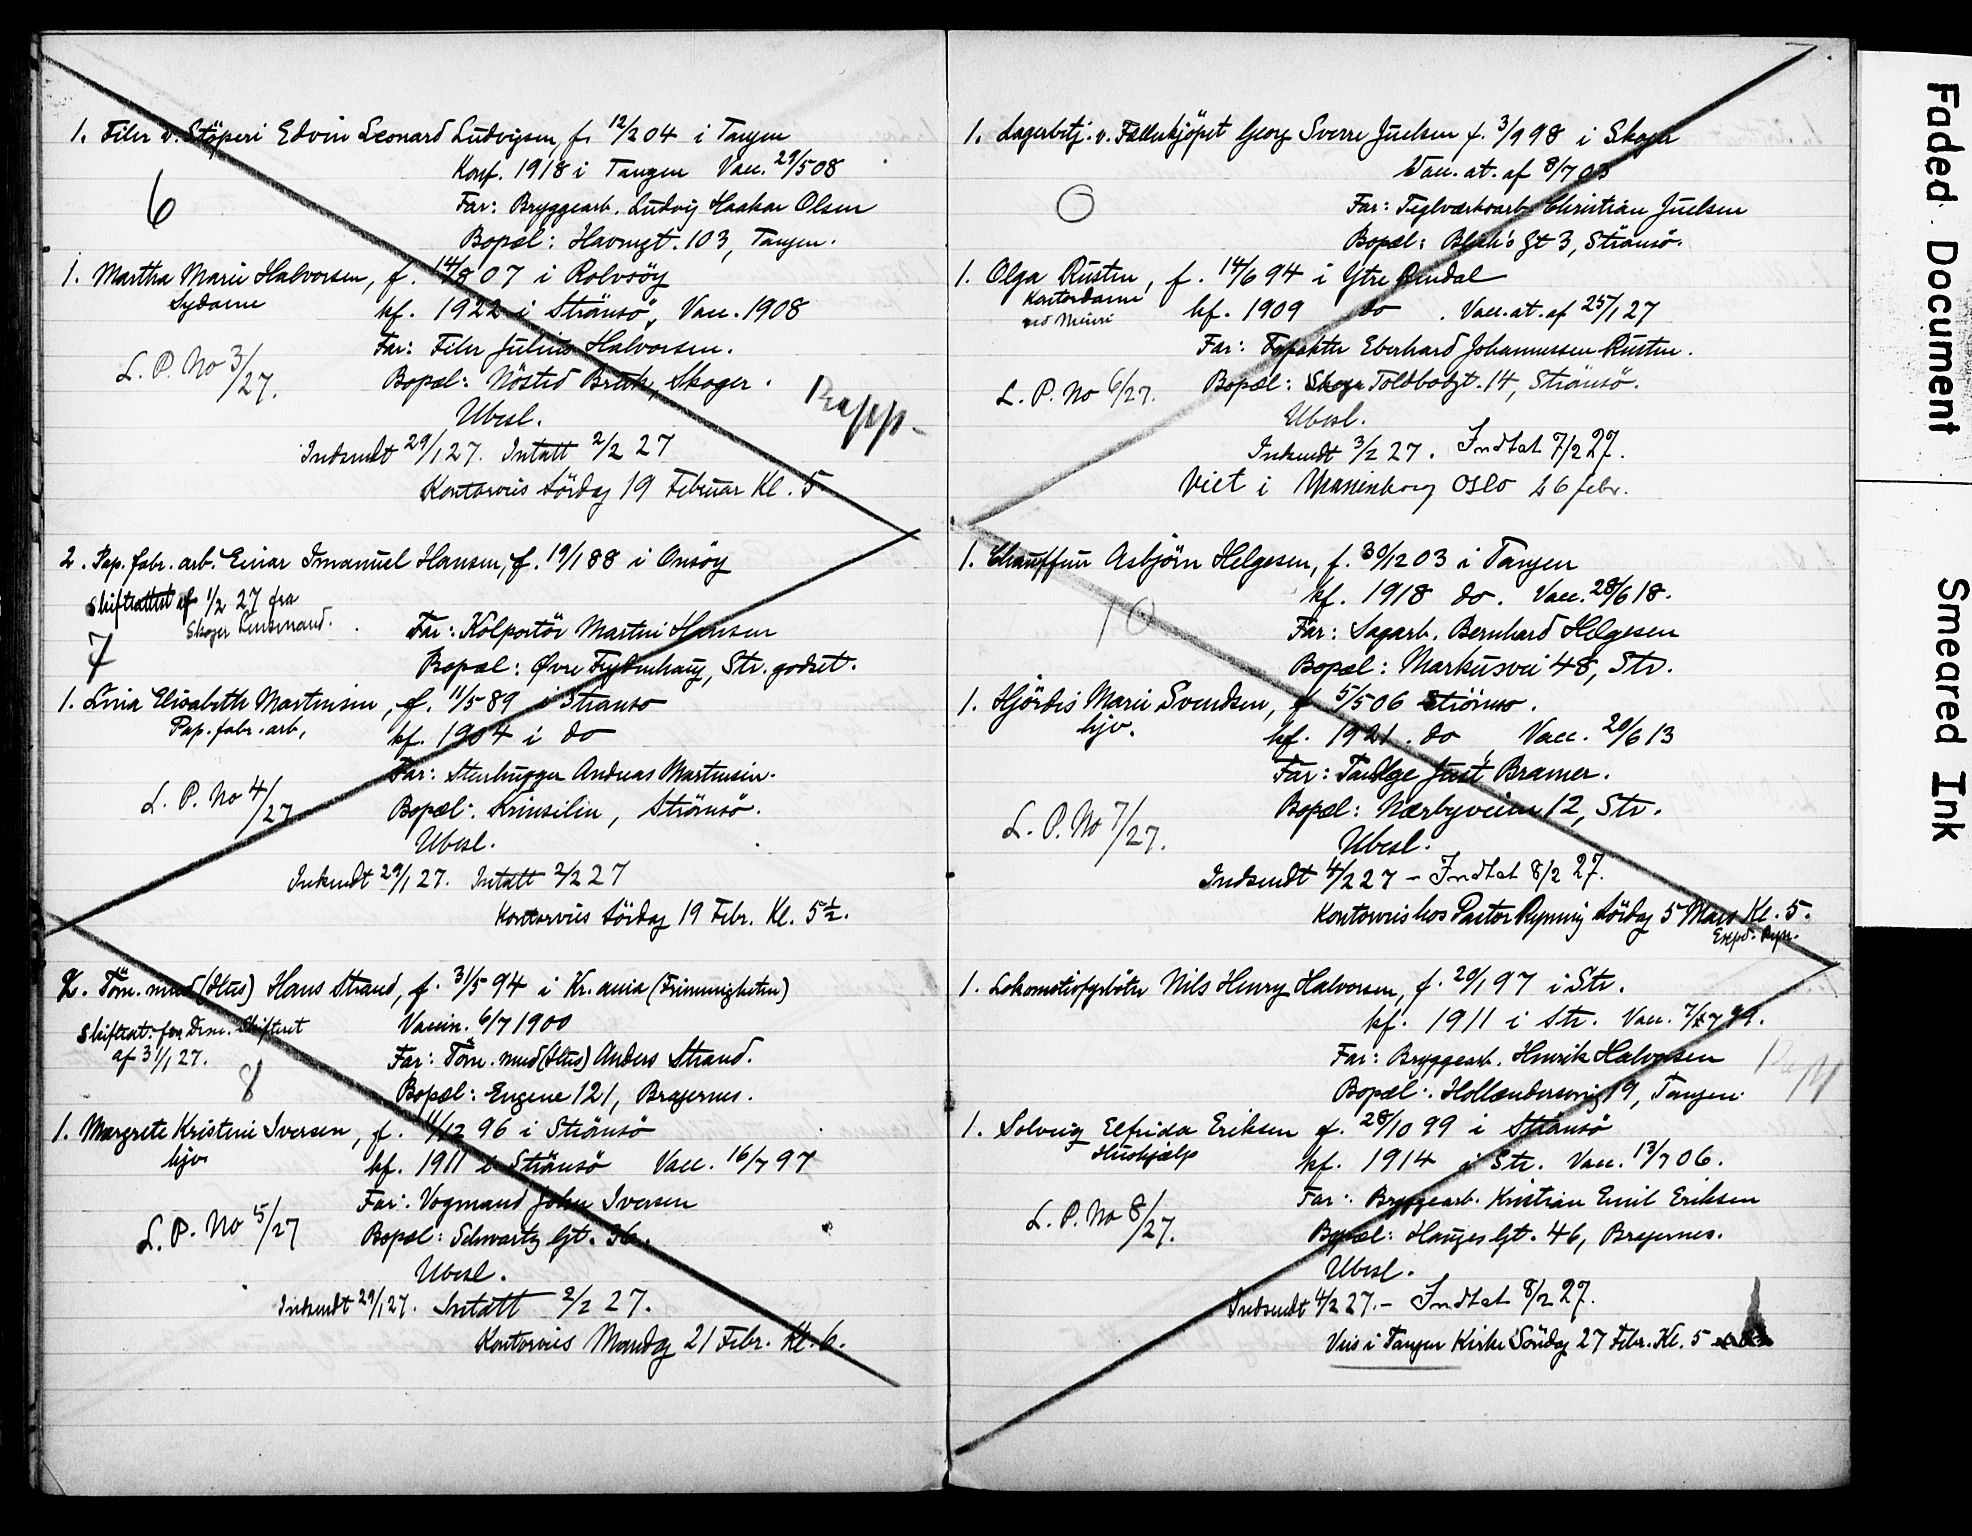 1. Filer v. Støperi Edvin Leonard Ludvigsen, f. 12/2 04 i Tangen
Konf. 1918 i Tangen Vacc. 29/5 08
6
Far: Bryggearb. Ludvig Haakon Olsen
Bopæl: Havngt. 103, Tangen.
1. Martha Marie Halvorsen, f. 14/8 07 i Rolvsöy
Sydame
kf. 1922 i Strömsö, Vacc. 1908
Far: Filer Julius Halvorsen.
L. P. No 3/27.
Bopæl: Nösted Bruk, Skoger.
Repp.
Ubesl.
Indsendt 29/1 27. Intatt 2/2 27
Kontorvies Lördag 19 Februar Kl. 5
2. Pap. fabr. arb. Einar Imanuel Hansen, f. 19/1 88 i Onsöy
Skifteattest af 1/2 27 fra
Skoger Lensmand.
7
Far: Kolportör Martin Hansen
Bopæl: Øvre Frydenhaug, Str. godset.
1. Lina Elisabeth Martinsen, f. 11/5 89 i Strömsö
Pap. fabr. arb.
kf. 1904 i do
Far: Stenhugger Andreas Martinsen.
L. P. No 4/27
Bopæl: Grinilien, Strömsö.
Ubesl.
Indsendt 29/1 27. Intatt 2/2 27
Kontorvies Lördag 19 Febr. Kl. 5 1/2.
2. Töm. mand (Hus) Hans Strand, f. 31/5 94 i Kr.ania (Frimenigheten)
Skifteat. fra Drm. Skifteret
af 31/1 27.
Vaccin. 6/7 1900
Far: Töm. mand (Hus) Anders Strand.
8
Bopæl: Engene 121, Bragernes.
1. Margrete Kristine Iversen, f. 11/12 96 i Strömsö
hjv.
kf. 1911 i Strömsö Vacc. 16/7 97
Far: Vogmand John Iversen
L. P. No 5/27
Bopæl: Schwartz Gt. 36.
Ubesl.
Indsendt 29/1 27. Intatt 2/2 27.
Kontorvies Mandag 21 Febr. Kl. 6.
1. Lagerbetj. v. Fælleskjöpet Georg Sverre Juelsen f. 3/9 98 i Skoger
Vacc. at. af 8/7 03
Far: Teglværksarb. Christian Juelsen
Bopæl: Blich's Gt 3, Strömsö.
1. Olga Rusten, f. 14/6 94 i Ytre Rendal
Kontordame
ved Meieri
kf. 1909 do. Vacc. at. af 25/1 27
Far: Eberhard Johannessen Rusten.
L. P. No 6/27.
Bopæl: Toldbodgt. 14, Strömsö.
Ubesl.
Indsendt 3/2 27. Indtat 7/2 27.
Viet i Marienborg Oslo 26 febr.
1. Chauffeur Asbjörn Helgesen, f. 30/12 03 i Tangen
kf. 1918 do. Vacc. 28/6 18.
10
Far: Sagarb. Bernhard Helgesen
Bopæl: Markusvei 48, Str.
1. Hjördis Marie Svendsen, f 5/5 06 Strömsö.
hjv.
kf. 1921. do, Vacc. 20/6 13
Far: Just Bramer.
L. P. No 7/27.
Bopæl: Nærbyveien 12, Str.
Ubesl.
Indsendt 4/2 27 - Indtat 8/2 27.
Kontorvies hos Pastor Rynning Lördag 5 Mars Kl. 5.
Exped. Ryn.
1. Lokomotivfyrböter Nils Henry Halvorsen, f. 20/1 97 i Str.
kf. 1911 i Str. Vacc. 7/7 99.
Far: Bryggearb. Henrik Halvorsen
Repp
Bopæl: Hollændersving 19, Tangen.
1. Solveig Elfrida Eriksen f. 28/10 99 i Strömsö
Hushjælp
kf. 1914 i Str. Vacc. 13/7 06.
Far: Bryggearb. Kristian Emil Eriksen
L. P. No 8/27.
Bopæl: Hauges Gt. 46, Bragernes.
Ubesl.
Indsendt 4/2 27. - Indtat 8/2 27.
Vies i Tangen Kirke Söndag 27 Febr. Kl. 5
Faded Document
Smeared Ink